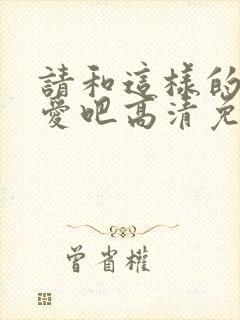 請和這樣的
愛吧高清免
曾省權